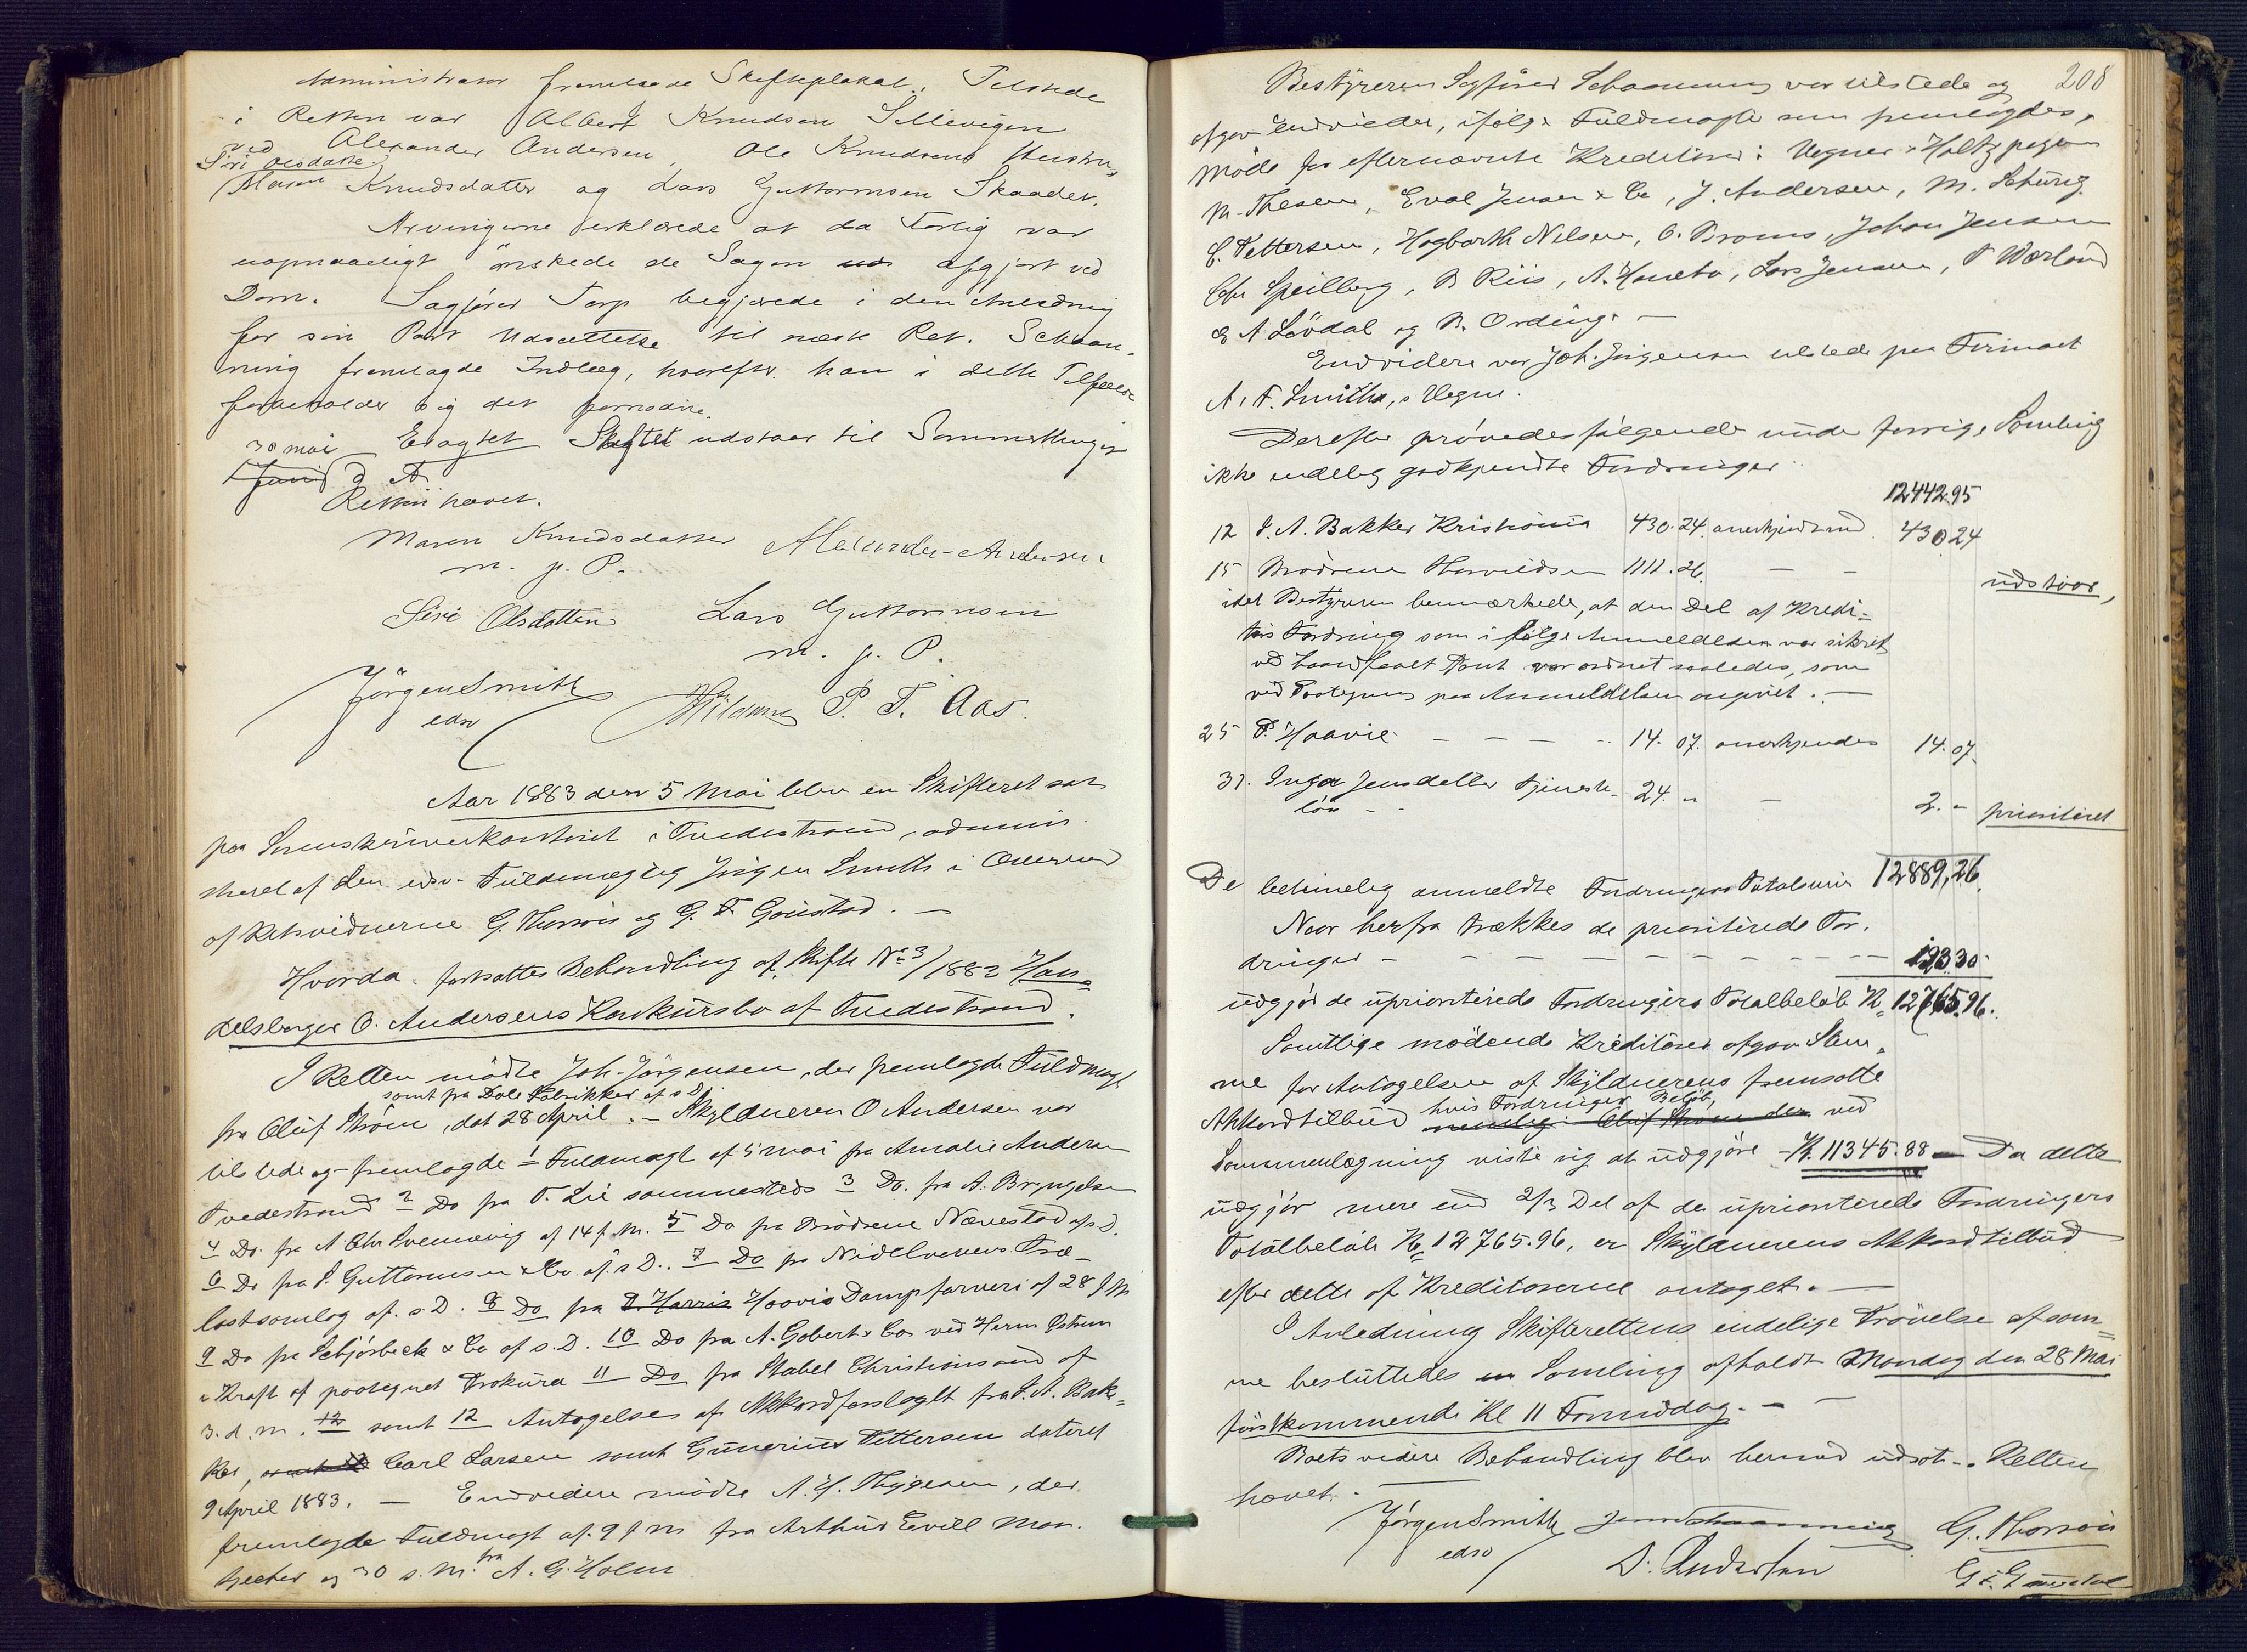 Administrator fremlagde Skifteplakat. Tilstede
i Retten var Albert Knudsen Sillevigen
ved Alexander Andersen, Ole Knudsens Hustru
Siri Olsdatter
Maren Knudsdatter og Lars Guttormsen Skaadet.
Arvingerne erklærede at da Forlig var
uopnaaeligt ønskede de Sagen afgjort ved
Dom. Sagfører Torp begjærede i den Anledning
for sin Part Udsættelse til næste Ret. Schaan-
ning fremlagde Indlæg, hvorefter han i dette Tilfælde
forbeholder sig det fornødne.
Eragtet Skiftet udstaar til Sammetlinger
30 mai
Juni d. A.
Retten hævet.
Maren Knudsdatter Alexander Andersen
m. p. P.
Siri Olsdatten Lars Guttormsen
m. p. P.
Jørgen Smith
edsv P. T. Aas.
Aar 1883 den 5 Mai blev en Skifteret sat
paa Sorenskriverkontoret i Tvedestrand, admini-
streret af den edsv. Fuldmægtig Jørgen Smith i Overvær
af Retsvidnerne G. Thorsøn og G. F. Goustad. —
Hvorda fortsattes Behandling af Skifte No 3/1882 Han-
delsborger O. Andersens Konkursbo af Tvedestrand.
I Retten mødte Joh. Jørgensen, der fremlagde Fuldmagt
samt fra Dale Fabrikker af s D
fra Oluf Strøm, dat 28 April. — Skyldneren O Andersen var
tilstede og fremlagde 1 Fuldmagt af 5 mai fra Amalie Andersen
Tvedestrand 2 Do fra T. Lie sammesteds 3 Do. fra A. Bryngelsen
4 Do. fra A. Chr Svennevig af 14 f. M. 5 Do fra Brødrene Nævestad af s D.
6 Do fra S. Guttormsen & Co. af s D. 7 Do fra Nidelvens Træ-
lastsamlag af s. D. 8 Do fra T. Harris Haavis Dampfarveri af 28 f M
9 Do fra Schjørbeck & Co af s. D. 10 Do fra A. Gobert & Co ved Herm
i Kraft af paategnet Prokura 11 Do fra Stabel Christiansand af
3. d. m. 12 samt 12 Antagelser af Akkordforslaget fra I. A. Bak-
ker, Carl Larsen samt Gunerius Pettersen dateret
9 April 1883. — Endvidere mødte N. H. Thygesen, der
fremlagde Fuldmagt af 9 f m fra Arthur Evill Man-
chester og 30 s. M. fra A. G. Holm
208
Bestyreren Sagfører Schaanning var tilstede og
afgav endvider, ifølge Fuldmagter som fremlagdes,
Møde for efternævnte Kreditorer: Wegner & Holtz
M. Thesen, Evald Jensen & Co, J. Andersen, M. Schurig
C. Pettersen, Hagbarth Nilsen, O. Broms, Johan Jensen
Chr Speilberg, B Riis, A. Haneto, Lars Jensen, T Værland
E A Løvdal og B. Ording. —
Endvidere var Joh. Jørgensen tilstede paa Firmaet
A. F. Smiths, s Vegne.
Derefter prøvedes følgende under forrige Samling
ikke endelig godkjendte Fordringer:
12442.95
12 I. A. Bakker Kristiania 430.24. anerkjendes med 430.24
15 Brødrene Harvildsen 1111.26. — — udstaar,
idet Bestyreren bemærkede, at den Del af Kredi-
tors Fordring som i følge Anmeldelsen var sikret
ved haandfaaet Pant var ordnet saaledes, som
ved Paategning paa Anmeldelsen angivet. —
25 P. Haavie — — — 14.07. anerkjendes 14.07.
31. Inga Jensdatter Tjeneste- 24. „ — 2. „ prioriteret
løn
De betimelig anmeldte Fordringers Totalsum 12889,26.
Naar herfra trækkes de prioriterede For-
dringer — — — — — — — — 123.30.
udgjør de uprioriterede Fordringers Totalbeløb Kr 12765.96.
Samtlige mødende Kreditorer afgav Stem-
me for Antagelsen af Skyldnerens fremsatte
hvis Fordringer Beløb,
Akkordtilbud nemlig Oluf Strøm den ved
Sammenlægning viste sig at udgjøre Kr. 11345.88 — Da dette
udgjør mere end 2/3 Del af de uprioriterede Fordringers
Totalbeløb Kr 12765.96, er Skyldnerens Akkordtilbud
efter dette af Kreditorerne antaget. —
I Anledning Skifterettens endelige Prøvelse af sam-
me besluttedes en Samling afholdt Mandag den 28 Mai
førstkommende Kl 11 Formiddag. —
Boets videre Behandling blev hermed udsat. — Retten
hævet.
Jørgen Smith Jens Schaanning G. Thorsøn
edsv O. Andersen G F. Goustad